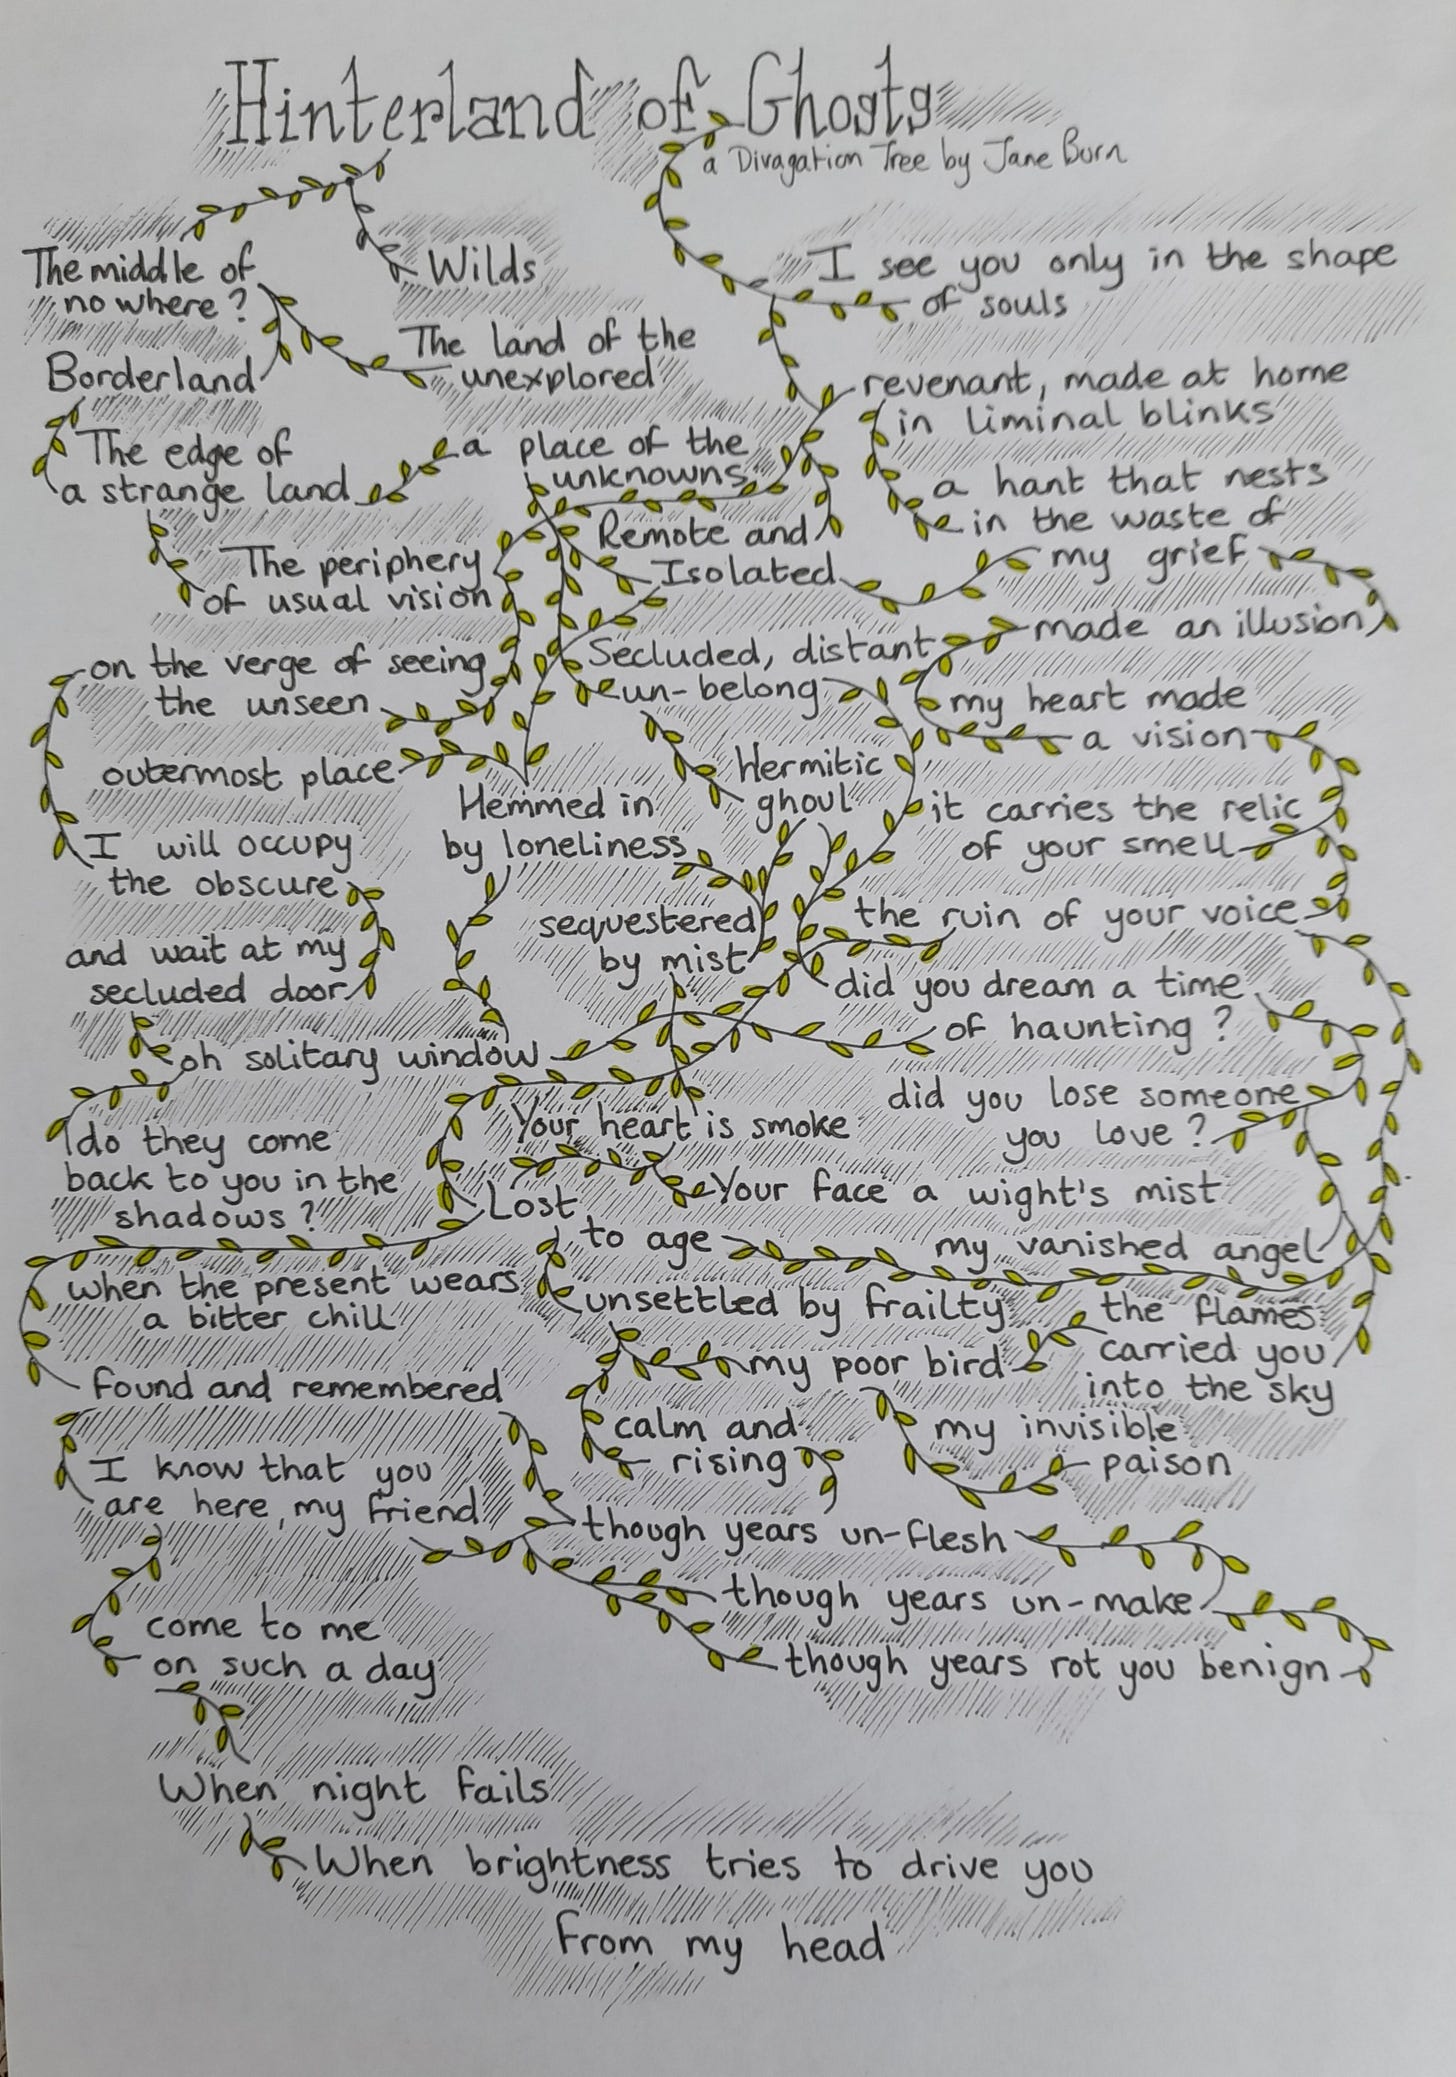 Hinterland of Ghosts
a Divagation Tree by Jane Burn
The middle of
no where?
Wilds
I see you only in the shape
of souls
The land of the
unexplored
Borderland
revenant, made at home
in liminal blinks
The edge of
a strange land
a place of the
unknowns
a hant that nests
in the waste of
my grief
Remote and
Isolated
The periphery
of usual vision
made an illusion
Secluded, distant
un-belong
on the verge of seeing
the unseen
my heart made
a vision
outermost place
Hermitic
ghoul
Hemmed in
by loneliness
it carries the relic
of your smell
I will occupy
the obscure
sequestered
by mist
the ruin of your voice
and wait at my
secluded door
did you dream a time
of haunting?
oh solitary window
did you lose someone
you love?
Your heart is smoke
do they come
back to you in the
shadows?
Lost
Your face a wight's mist
to age
my vanished angel
when the present wears
a bitter chill
unsettled by frailty
the flames
carried you
into the sky
my poor bird
found and remembered
calm and
rising
my invisible
paison
I know that you
are here, my friend
though years un-flesh
though years un-make
come to me
on such a day
though years rot you benign
When night fails
When brightness tries to drive you
from my head